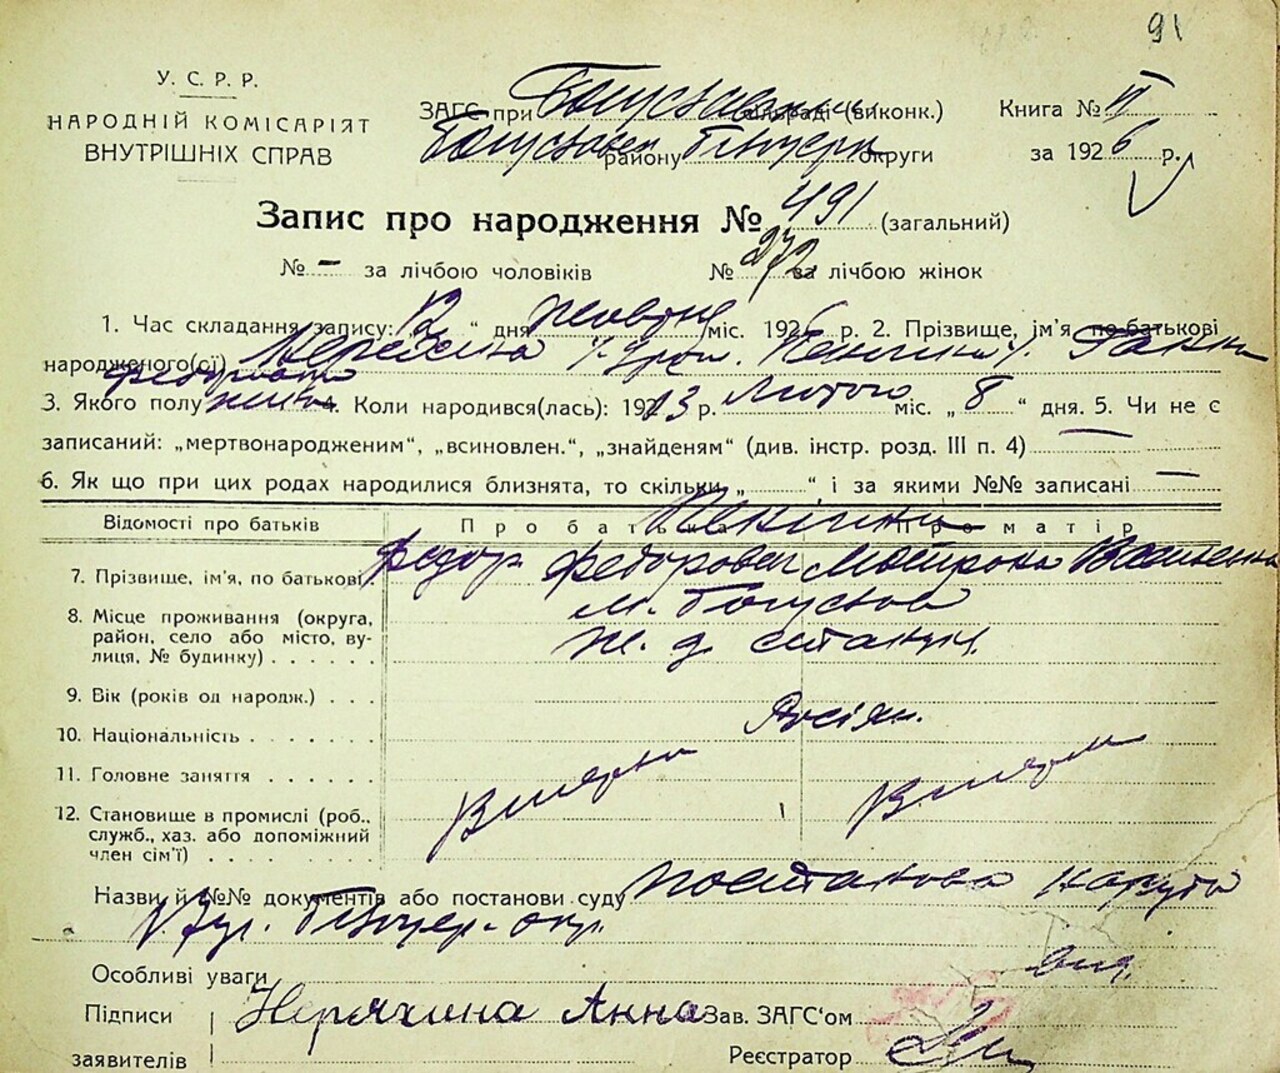 91
У. С. Р. Р.
НАРОДНІЙ КОМІСАРІЯТ
ВНУТРІШНІХ СПРАВ
ЗАГС при Богуславськ. сільраді (виконк.)
Богуславськ району Білоцерк округи
Книга № VI
за 1926 р.
Запис про народження № 491 (загальний)
№ - за лічбою чоловіків № 272 за лічбою жінок
1. Час складання запису: 12 " дня Жовтня міс. 1926 р. 2. Прізвище, ім'я, по-батькові
народженого(ої) Ганна
Федорівна
3. Якого полу жіноч. 4. Коли народився(лась): 1913 р. Лютого міс. „ 8 " дня. 5. Чи не є
записаний: „мертвонародженим", „всиновлен.", „знайденям" (див. інстр. розд. III п. 4) —
6. Як що при цих родах народилися близнята, то скільки „ ", і за якими №№ записані —
Відомості про батьків Про батька Про матір
7. Прізвище, ім'я, по батькові Федор Федорович Мотрона
8. Місце проживання (округа, район, село або місто, вулиця, № будинку) м. Богуслав
ж. д. станція
9. Вік (років од народж.)
10. Національність Росіян.
11. Головне заняття
12. Становище в промислі (роб., служб., хаз. або допоміжний член сім'ї)
Назви й №№ документів або постанови суду постанова нарсуду
Білоцер. окр.
Особливі уваги
Підписи Нерячина Анна Зав. ЗАГС'ом
заявителів Реєстратор